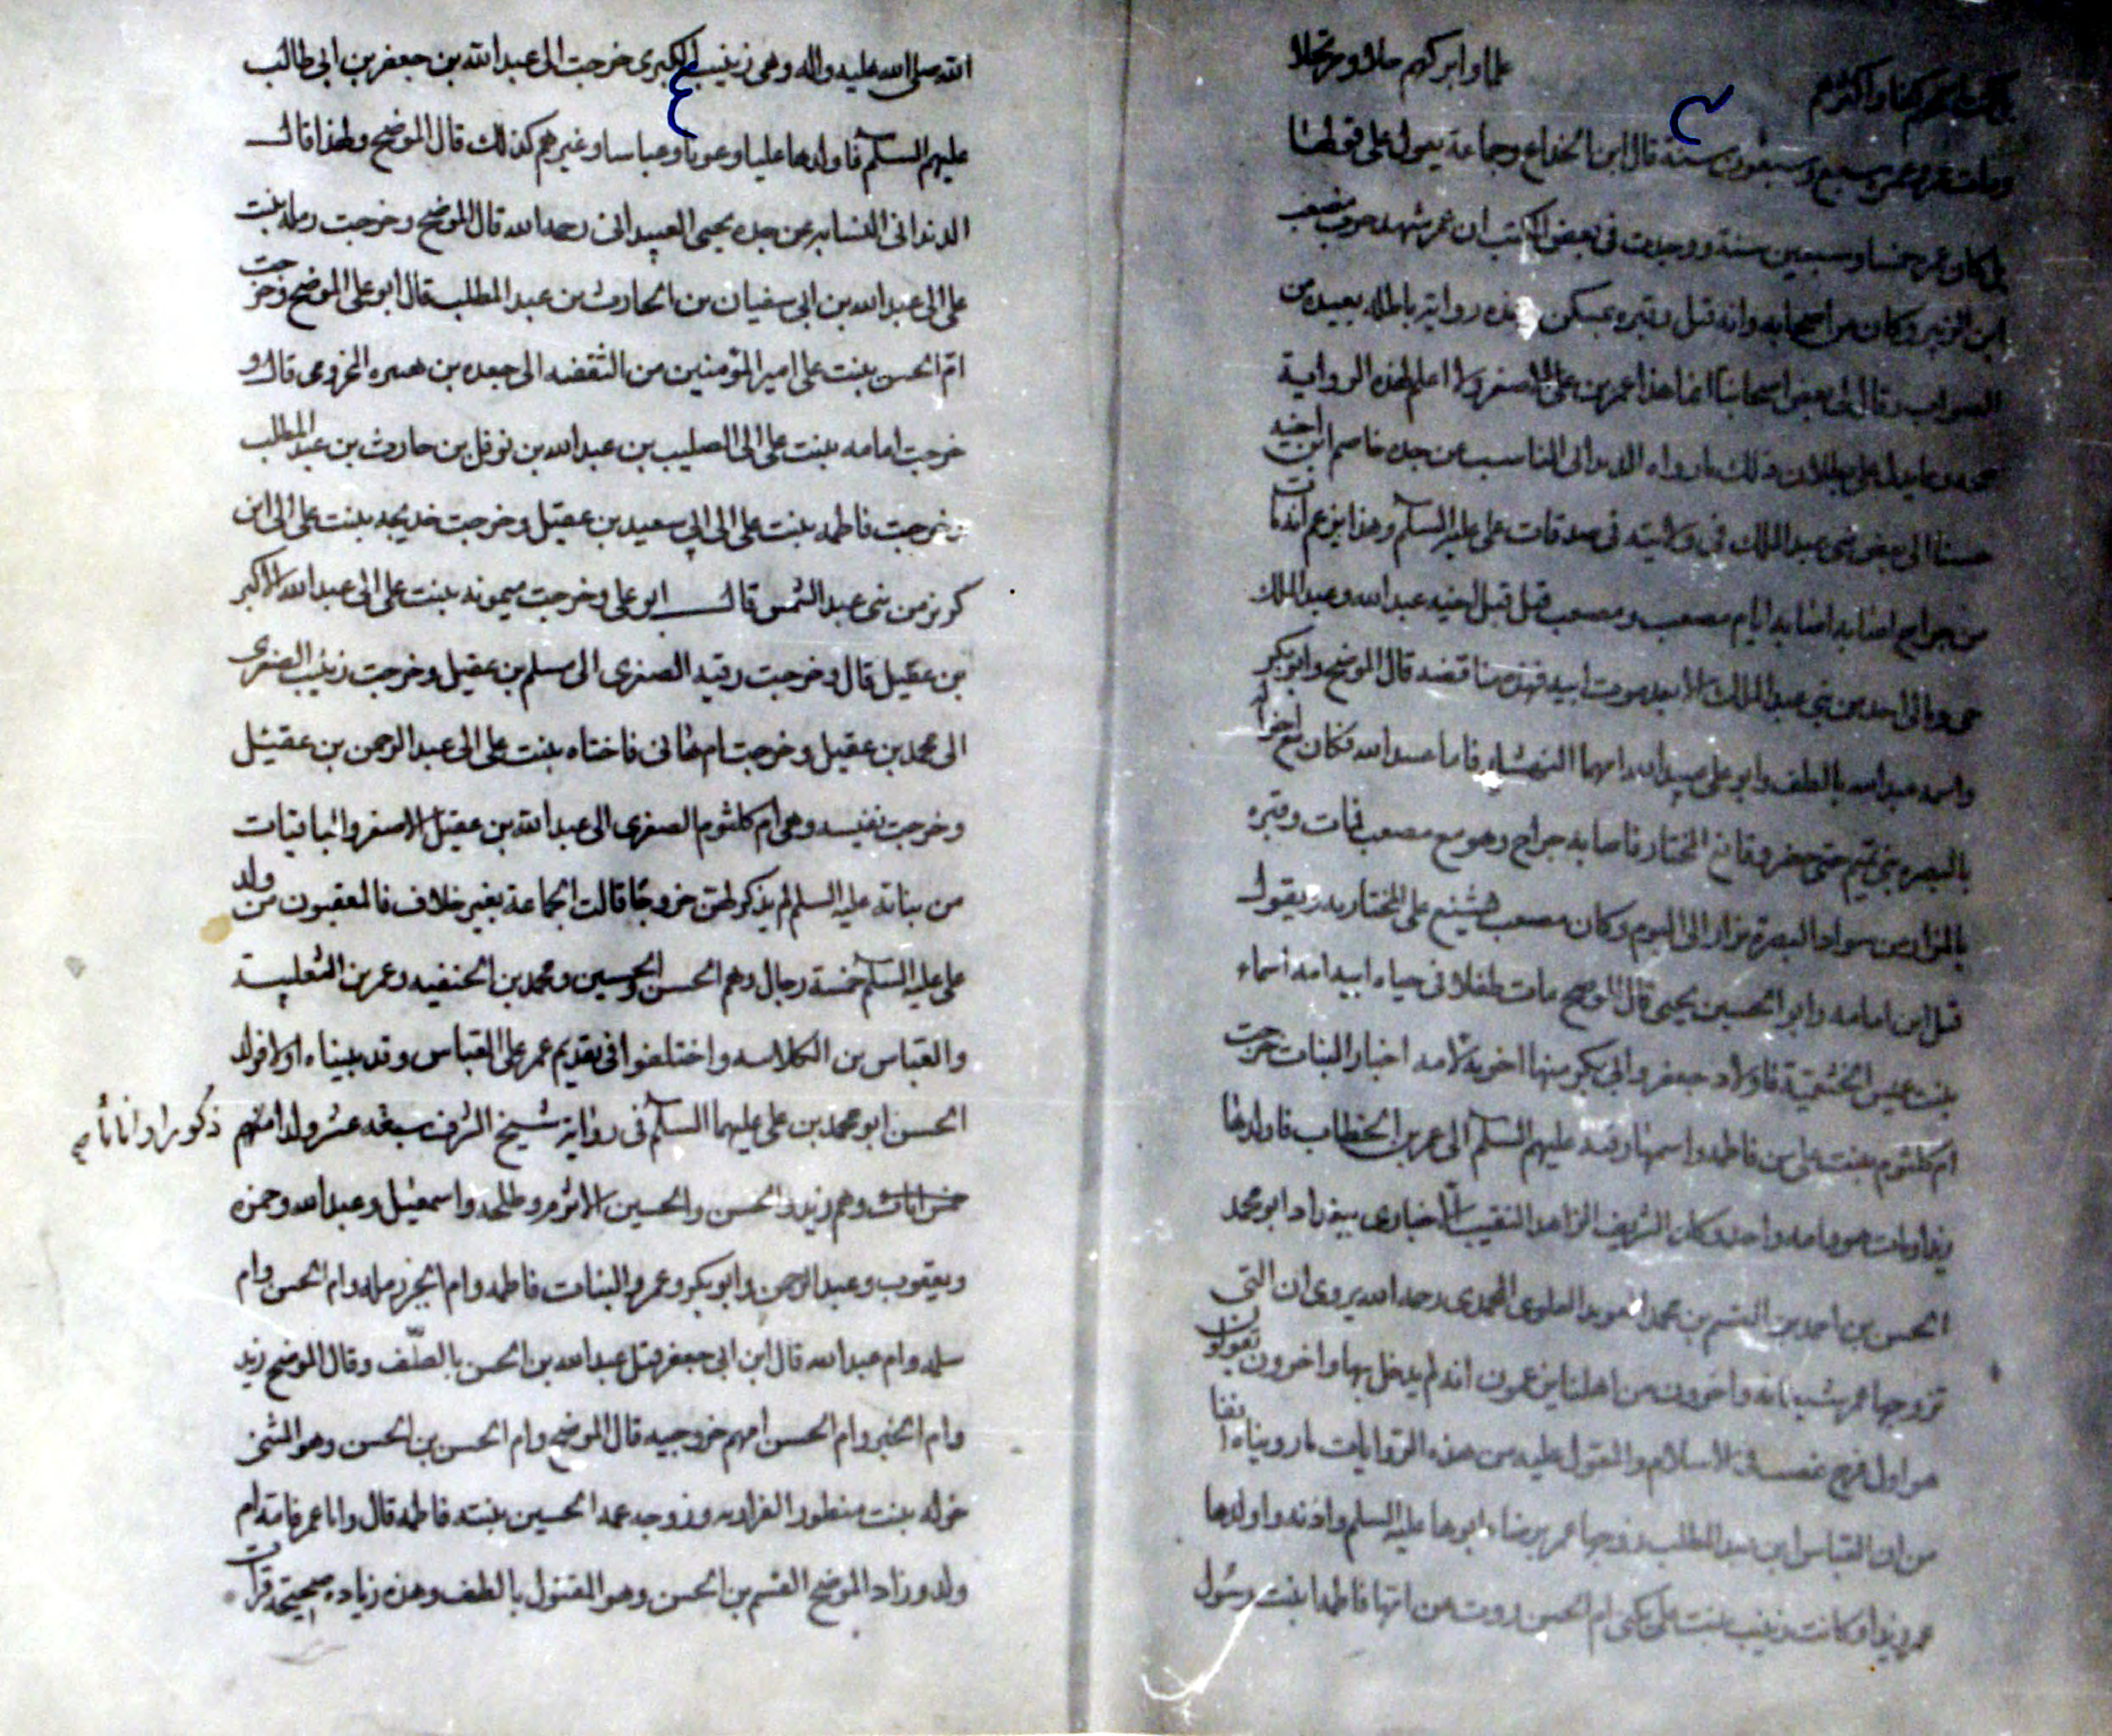 علما وابركهم حلا و مرتحلا
ومات عمر وعمره سبع وسبعون سنة قال ابن الخداع وجماعة يعول على قولها
بل كان عمره خمسا وسبعين سنة ووجدت في بعض الكتب ان عمر شهد حرب مصعب
ابن الزبير وكان من اصحابه وانه قتل وقبره بمسكن وهذه رواية باطلة بعيدة من
الصواب وقال لي بعض اصحابنا انما هذا عمر بن علي الاصغر ولا اعلم لهذه الرواية
صحة ومما يدل على بطلان ذلك ما رواه الدنداني الناسب عن جده خاصم ابن اخيه
حسنا الى بعض بني عبد الملك في ولايته في صدقات علي عليه السلم وهذا يزعم انه مات
من جراح اصابه ايام مصعب ومصعب قتل قبل اخيه عبد الله وعبد الملك
حي وما الى احد من بني عبد الملك الا بعد موت ابيه فهذه مناقضه قال الموضح وابو بكر
واسمه عبد الله بالطف وابو علي عبيد الله امهما النهشلية فاما عبيد الله فكان مع اخواله
بالبصره بني تميم حتى حضر وقايع المختار فاصابه جراح وهو مع مصعب فمات وقبره
بالمزار من سواد البصرة يزار الى اليوم وكان مصعب يشنع على المختار به ويقول
قتل ابن امامه وابو الحسين يحيى قال الموضح مات طفلا في حياه ابيه امه اسماء
بنت عميس الخثعمية فاولاد جعفر وابي بكر منها اخوته لامه اخبار البنات خرجت
ام كلثوم بنت علي من فاطمة واسمها رقيه عليهم السلم الى عمر بن الخطاب فاولدها
زيدا ومات هو وامه وكان الشريف الزاهد النقيب الاخباري ببغداد ابو محمد
الحسن بن احمد بن القسم بن محمد العويد العلوي المحمدي رحمه الله يروي ان التي
تزوجها عمر شيطانه واخرون من اهلنا يزعمون انه لم يدخل بها واخرون يقولون
هو اول فرج غصب في الاسلام والمعول عليه من هذه الروايات ما رويناه انفا
من ان العباس ابن عبد المطلب زوجها عمر برضاء ابوها عليه السلم واذنه واولدها
عمر زيدا وكانت زينب بنت علي تكنى ام الحسن روت من امها فاطمة بنت رسول
الله صلى الله عليه واله وهي زينب الكبرى خرجت الى عبد الله بن جعفر بن ابي طالب
عليهم السلم فاولدها عليا وعونا وعباسا وغيرهم كذلك قال الموضح وهذا قال
الدنداني النسابه عن جده يحيى العبيداني رحمه الله قال الموضح وخرجت رمله بنت
علي الى عبد الله بن ابي سفيان بن الحارث بن عبد المطلب قال ابو علي الموضح وخرجت
ام الحسن بنت علي امير المؤمنين من الثقفيه الى جعده بن هبيره المخزومي قال و
خرجت امامه بنت علي الى الصليب بن عبد الله بن نوفل بن حارث بن عبد المطلب
وخرجت فاطمه بنت علي الى ابي سعيد بن عقيل وخرجت خديجه بنت علي الى ابن
كريز من بني عبد الشمس قال ابو علي وخرجت ميمونه بنت علي الى عبد الله الاكبر
بن عقيل قال وخرجت رقيه الصغرى الى مسلم بن عقيل وخرجت زينب الصغرى
الى محمد بن عقيل وخرجت ام هاني فاختاه بنت علي الى عبد الرحمن بن عقيل
وخرجت نفيسه وهي ام كلثوم الصغرى الى عبد الله بن عقيل الاصغر والباقيات
من بناته عليه السلم لم يذكر لهن خروجا قالت الجماعة بغير خلاف فالمعقبون من ولد
علي عليه السلم خمسة رجال وهم الحسن والحسين ومحمد بن الحنفيه وعمر بن التغلبية
والعباس بن الكلابيه واختلفوا في تقديم عمر على العباس وقد بيناه اولا فولد
الحسن ابو محمد بن علي عليهما السلم في رواية شيخ الشرف ستة عشر ولدا منهم ذكورا واناثا صح
خمس اناث وهم زيد والحسن والحسين الاثرم وطلحه واسمعيل وعبد الله وحمزه
ويعقوب وعبد الرحمن وابو بكر وعمر والبنات فاطمه وام الخير رمله وام الحسن وام
سلمه وام عبد الله قال ابن ابي جعفر قتل عبد الله بن الحسن بالطف وقال الموضح زيد
وام الخير وام الحسن امهم خزرجيه قال الموضح وام الحسن بن الحسن وهو المثنى
خوله بنت منظور الفزاريه وزوجه عمه الحسين بنته فاطمه قال واما عمر فامه ام
ولد وزاد الموضح القسم بن الحسن وهو المقتول بالطف وهذه زياده صحيحة قرات